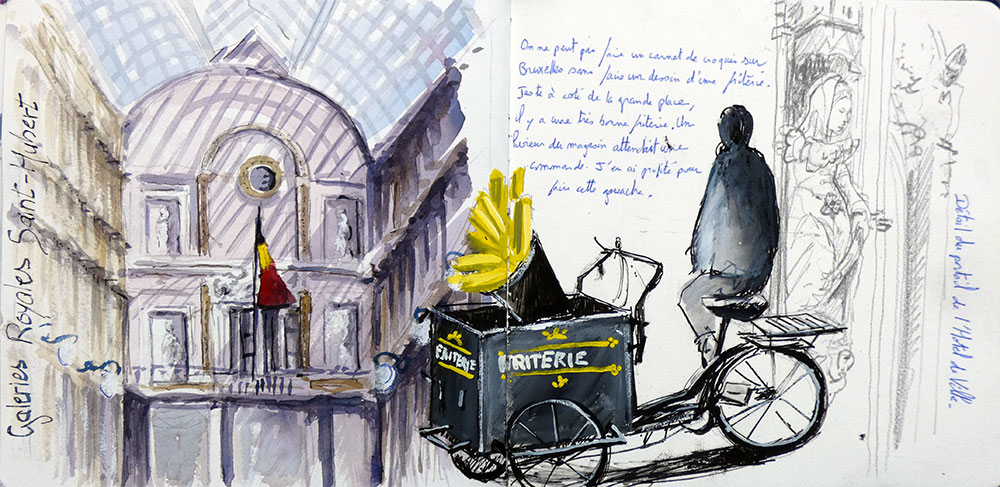 Galeries Royales Saint-Hubert
On ne peut pas faire un carnet de croquis sur
Bruxelles sans faire un dessin d'une friterie.
Juste à coté de la grande place,
il y a une très bonne friterie. Un
livreur du magasin attendait une
commande. J'en ai profité pour
faire cette gouache.
FRITERIE
FRITERIE
Détail du portail de l'Hotel de Ville.